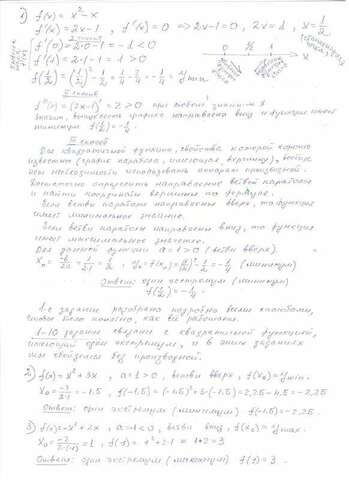 1) f(x) = x² - x
f'(x) = 2x - 1 , f'(x) = 0 => 2x - 1 = 0 , 2x = 1 , x = 1/2
I способ
f'(0) = 2·0 - 1 = -1 < 0
f'(1) = 2·1 - 1 = 1 > 0
0 1/2 1 x
f(1/2) = (1/2)² - 1/2 = 1/4 - 2/4 = -1/4 = y min.
II способ
f''(x) = (2x-1)' = 2 > 0 при любом значении x
Значит, выпуклость графика направлена вниз и функция имеет
минимум f(1/2) = -1/4.
III способ
Для квадратичной функции, свойства которой хорошо
известны (график парабола, имеющая вершину), вообще
нет необходимости использовать аппарат производной.
Достаточно определить направление ветвей параболы
и найти координаты вершины по формуле.
Если ветви параболы направлены вверх, то функция
имеет минимальное значение.
Если ветви параболы направлены вниз, то функция
имеет максимальное значение.
Для данной функции a = 1 > 0 (ветви вверх).
x₀ = -b/2a = 1/2·1 = 1/2 , y₀ = f(x₀) = (1/2)² - 1/2 = -1/4 (минимум)
Ответ: один экстремум (минимум)
f(1/2) = -1/4.
1-е задание разобрано подробно всеми способами,
чтобы было понятно, как всё работает.
1-10 задание связано с квадратичной функцией,
имеющей один экстремум, и в этих заданиях
без производной.
2) f(x) = x² + 3x , a = 1 > 0 , ветви вверх , f(x₀) = y min.
x₀ = -3/2·1 = -1.5 , f(-1.5) = (-1.5)² + 3·(-1.5) = 2.25 - 4.5 = -2.25
Ответ: один экстремум (минимум) f(-1.5) = -2.25.
3) f(x) = -x² + 2x , a = -1 < 0 , ветви вниз , f(x₀) = y max.
x₀ = -2/2·(-1) = 1 , f(1) = 1² + 2·1 = 1 + 2 = 3
Ответ: один экстремум (максимум) f(1) = 3 .